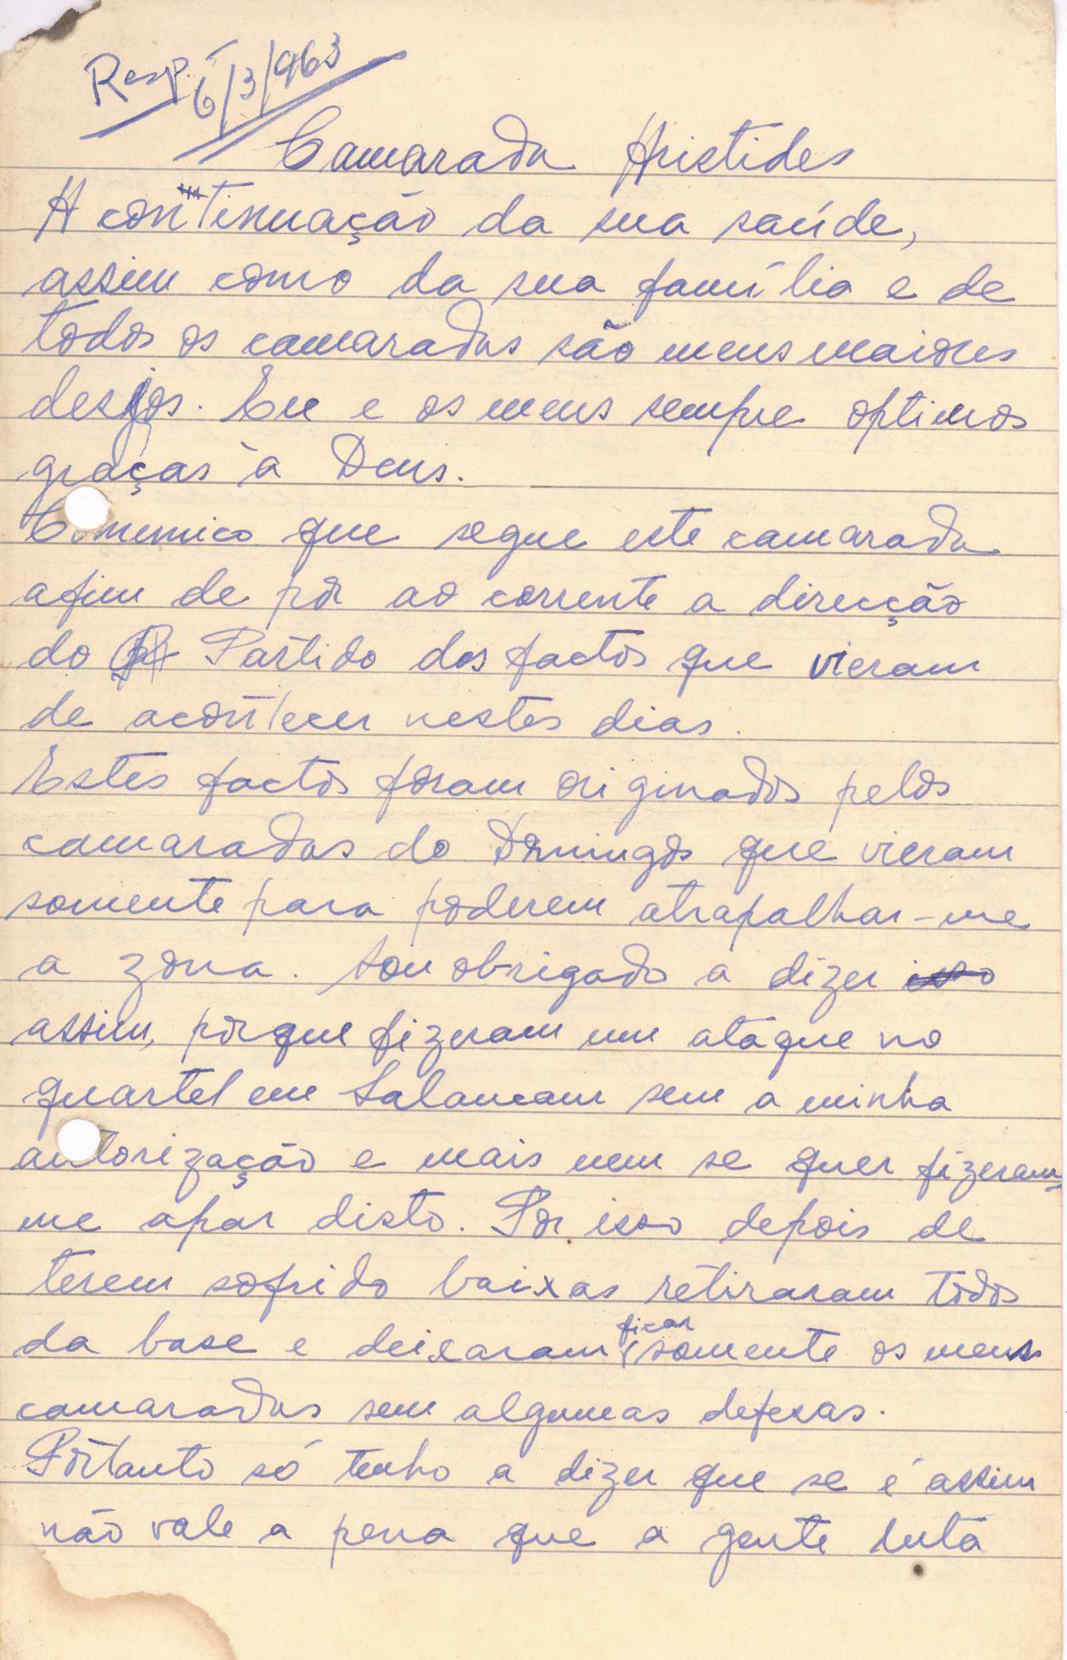 Resp. 6/3/963
Camarada Aristides
A continuação da sua saúde,
assim como da sua família e de
todos os camaradas são meus maiores
desejos. Eu e os meus sempre optimos
graças à Deus.
Comunico que segue este camarada
afim de pôr ao corrente a direcção
do Partido dos factos que vieram
de acontecer nestes dias.
Estes factos foram originados pelos
camaradas do Domingos que vieram
somente para poderem atrapalhar-me
a zona. Sou obrigado a dizer isso
assim, porque fizeram um ataque no
quartel em Salancaur sem a minha
autorização e mais nem se quer fizeram-
me apar disto. Por isso depois de
terem sofrido baixas retiraram todos
da base e deixaram ficar somente os meus
camaradas sem algumas defesas.
Portanto só tenho a dizer que se é assim
não vale a pena que a gente luta